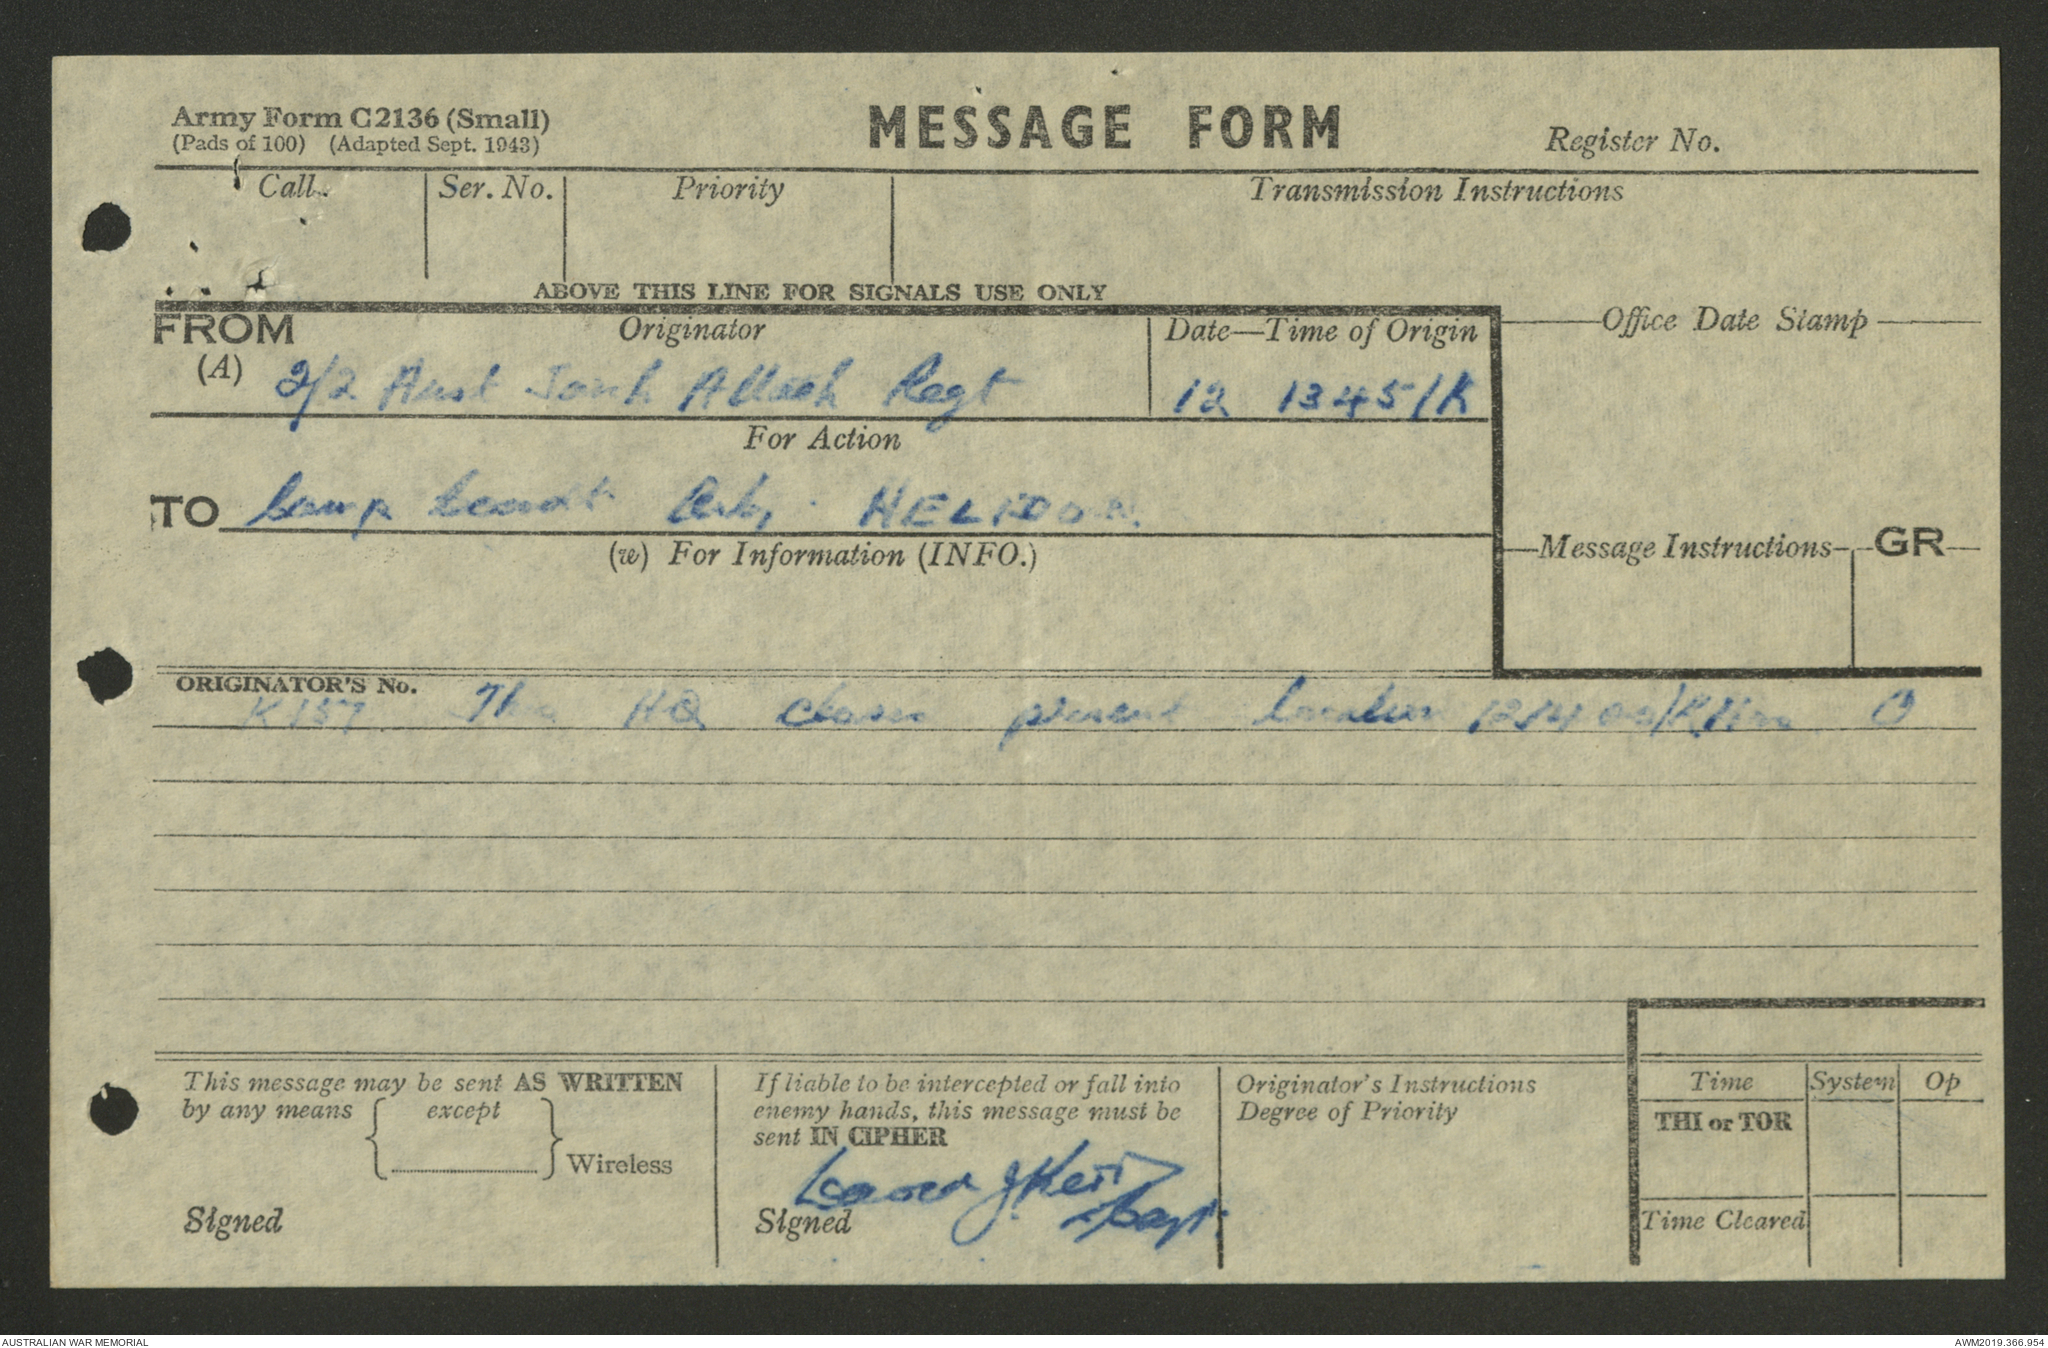 Army Form C2136 (Small)
(Pads of 100) (Adapted Sept. 1943)
MESSAGE FORM
Register No.
Call Ser. No. Priority Transmission Instructions
ABOVE THIS LINE FOR SIGNALS USE ONLY
FROM Originator Date—Time of Origin Office Date Stamp
(A) 2/2 Aust Tank Attack Regt 12 1345/K
For Action
TO Camp Comdt HELIDON
Message Instructions GR
(w) For Information (INFO.)
ORIGINATOR'S No.
K157 This HQ closes present location 121400/K hrs
This message may be sent AS WRITTEN
by any means except
Wireless
Signed
If liable to be intercepted or fall into
enemy hands, this message must be
sent IN CIPHER
J Kerr
Signed Capt.
Originator's Instructions
Degree of Priority
Time System Op
THI or TOR
Time Cleared
AUSTRALIAN WAR MEMORIAL
AWM2019.366.954